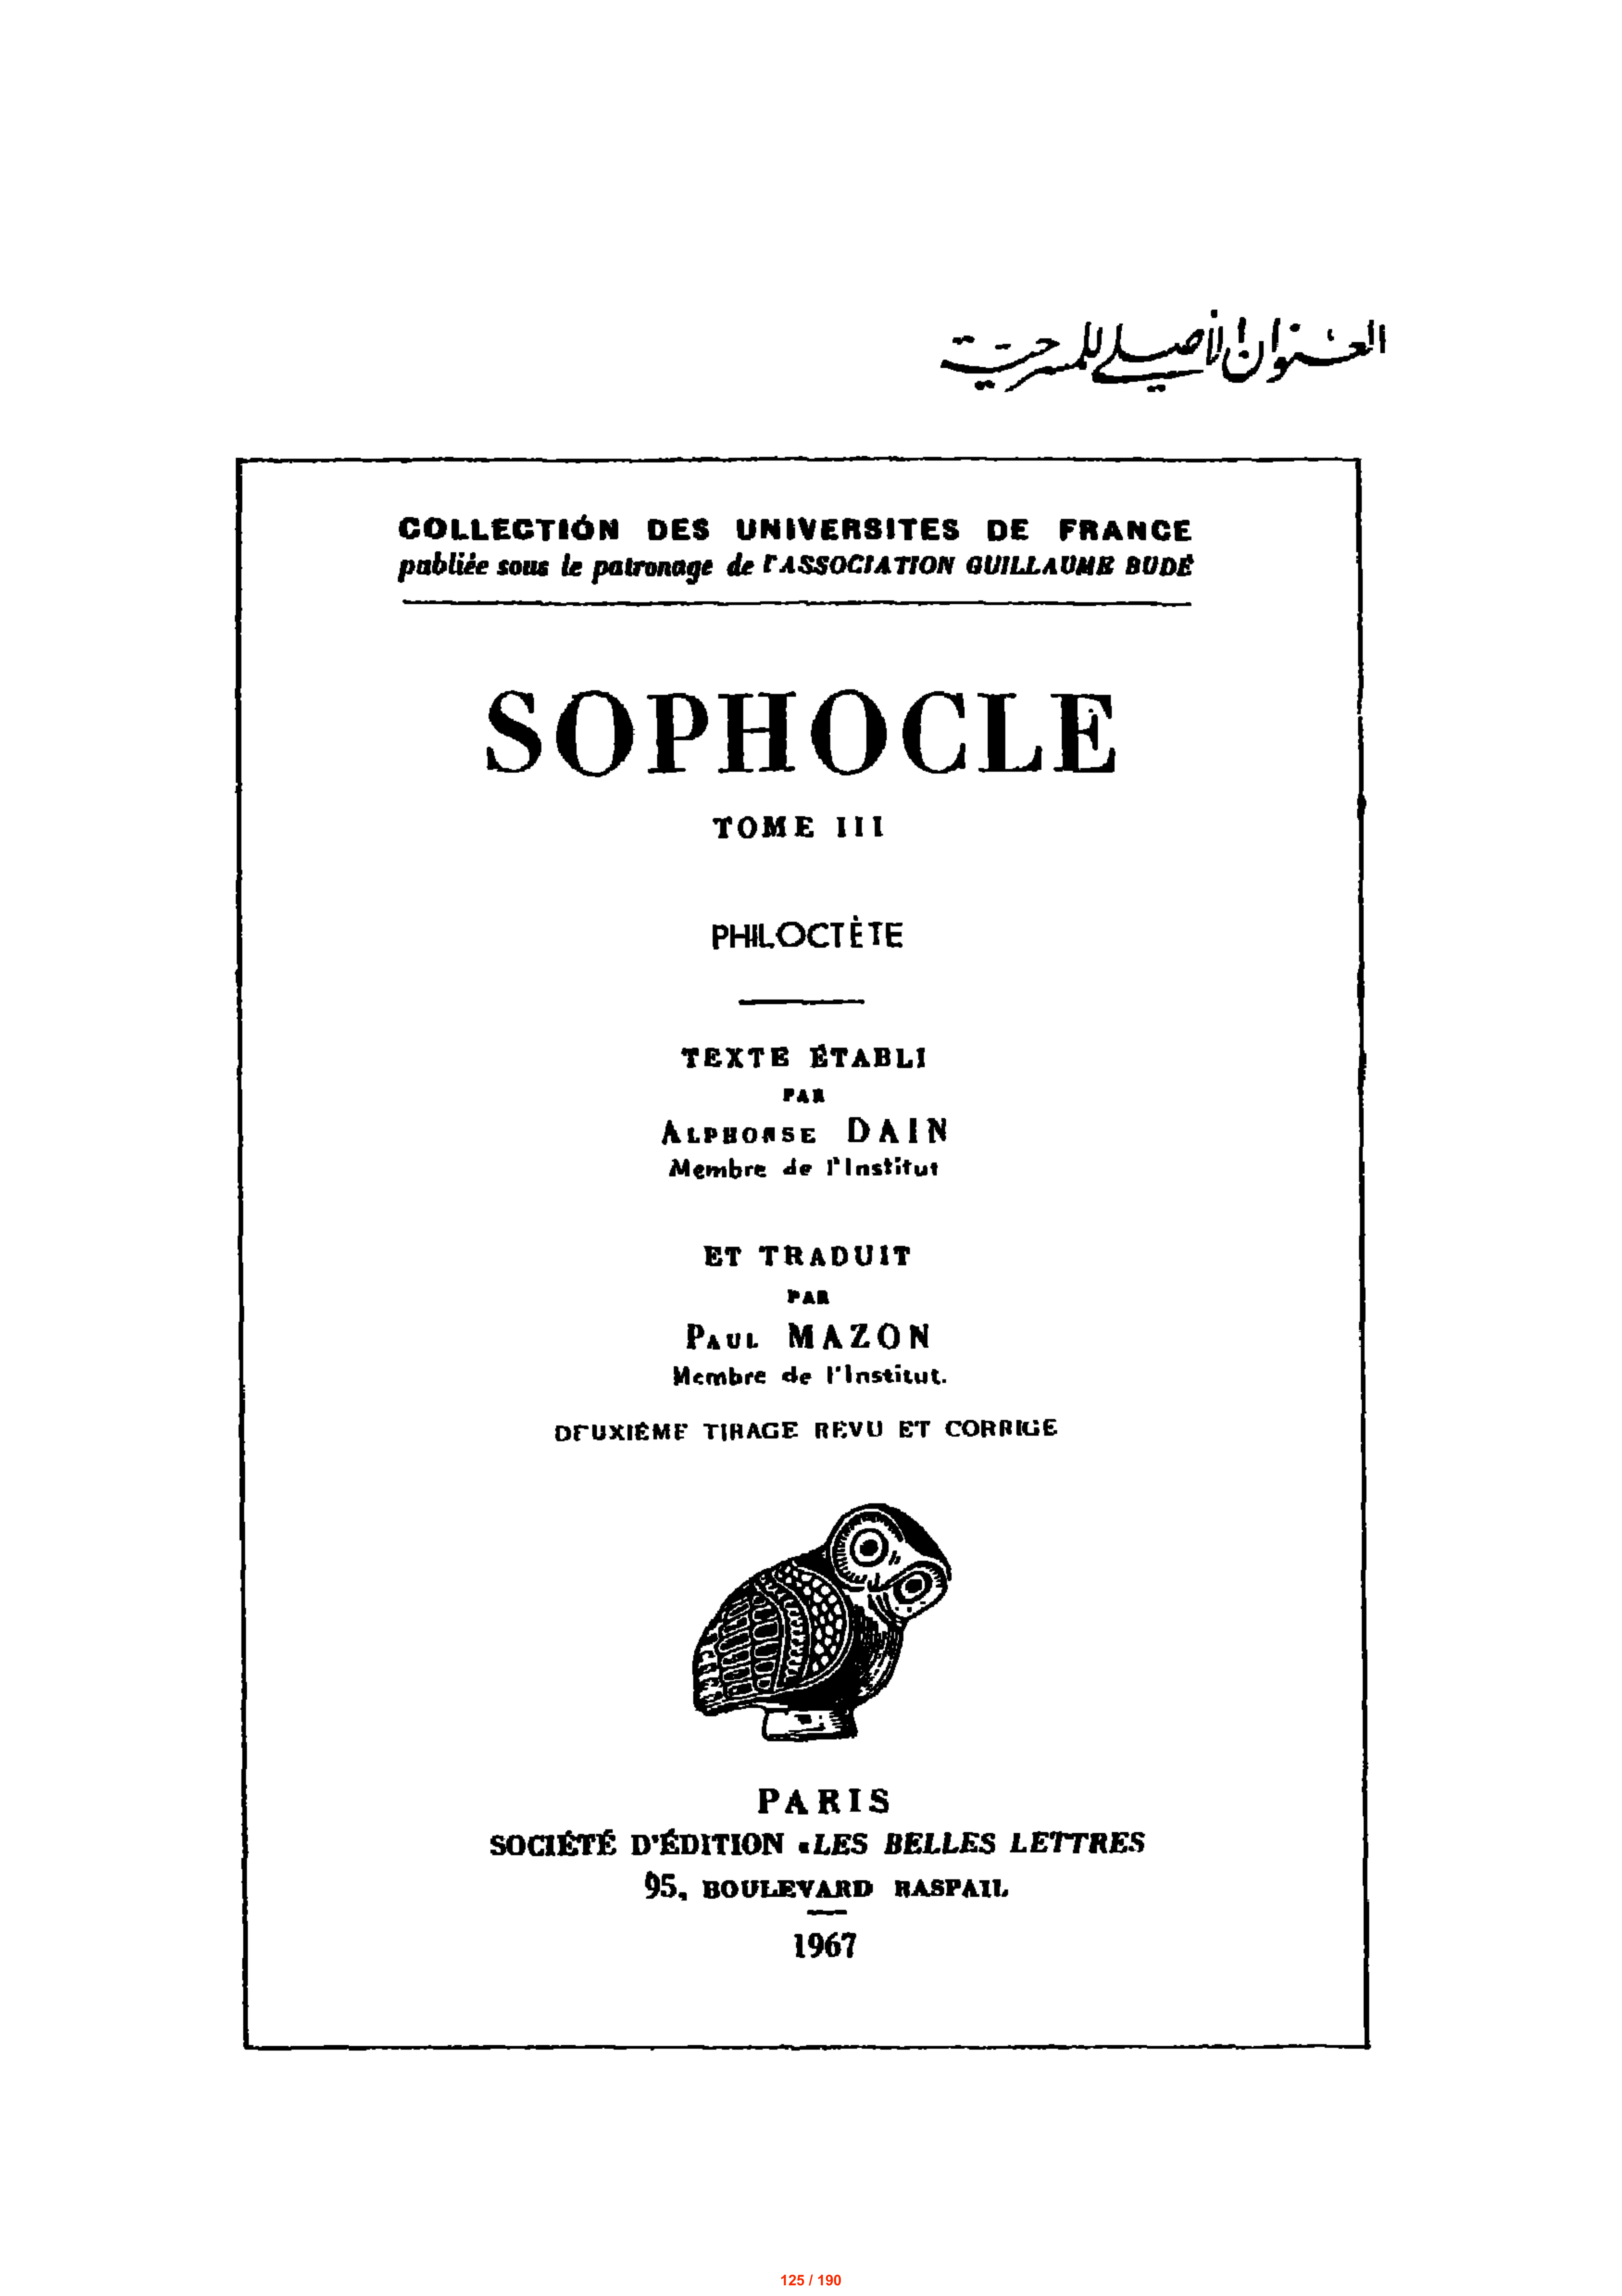 العنوان الأصلي للمسرحية
COLLECTIÓN DES UNIVERSITES DE FRANCE
publiée sous le patronage de l'ASSOCIATION GUILLAUME BUDÉ
SOPHOCLE
TOME III
PHILOCTÈTE
TEXTE ÉTABLI
PAR
ALPHONSE DAIN
Membre de l'Institut
ET TRADUIT
PAR
PAUL MAZON
Membre de l'Institut.
DEUXIÈME TIRAGE REVU ET CORRIGE
PARIS
SOCIÉTÉ D'ÉDITION «LES BELLES LETTRES
95, BOULEVARD RASPAIL
1967
125 / 190